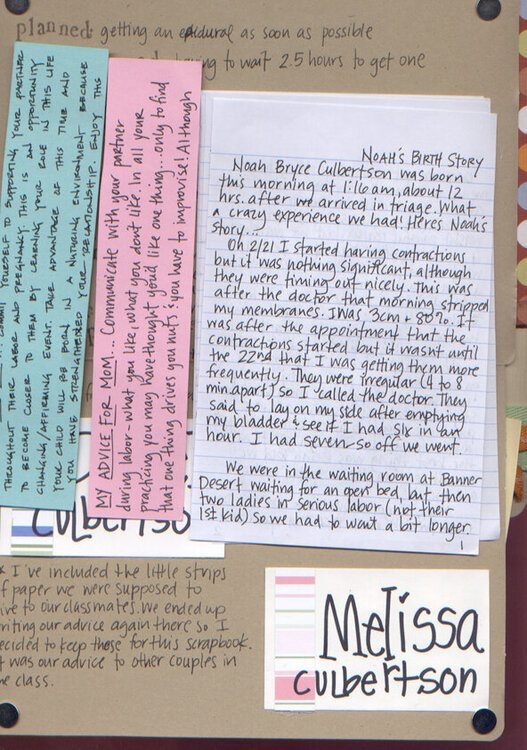 planned: getting an epidural as soon as possible
to wait 2.5 hours to get one
YOURSELF TO SUPPORTING YOUR PARTNER
THROUGHOUT THEIR LABOR AND PREGNANCY. THIS IS AN OPPORTUNITY
TO BECOME CLOSER TO THEM BY LEARNING YOUR ROLE IN THIS LIFE
CHANGING/AFFIRMING EVENT. TAKE ADVANTAGE OF THIS TIME AND
YOUR CHILD WILL BE BORN IN A NURTURING ENVIRONMENT BECAUSE
YOU HAVE STRENGTHENED YOUR RELATIONSHIP. ENJOY THIS
MY ADVICE FOR MOM... Communicate with your partner
during labor what you like, what you don't like. In all your
practicing you may have thought you'd like one thing... only to find
that one thing drives you nuts & you have to improvise! Although
NOAH'S BIRTH STORY
Noah Bryce Culbertson was born
this morning at 1:16 am, about 12
hrs. after we arrived in triage. What
a crazy experience we had! Heres Noah's
story...
On 2/21 I started having contractions
but it was nothing significant, although
they were timing out nicely. This was
after the doctor that morning stripped
my membranes. I was 3cm & 80%. It
was after the appointment that the
contractions started but it wasnt until
the 22nd that I was getting them more
frequently. They were irregular (4 to 8
min. apart) so I called the doctor. They
said to lay on my side after emptying
my bladder & see if I had six in an
hour. I had seven so off we went.
We were in the waiting room at Banner
Desert waiting for an open bed, but then
two ladies in serious labor (not their
1st kid) so we had to wait a bit longer.
1
Culbertso
* I've included the little strips
of paper we were supposed to
give to our classmates. We ended up
writing our advice again there so I
decided to keep these for this scrapbook.
It was our advice to other couples in
the class.
Melissa
Culbertson